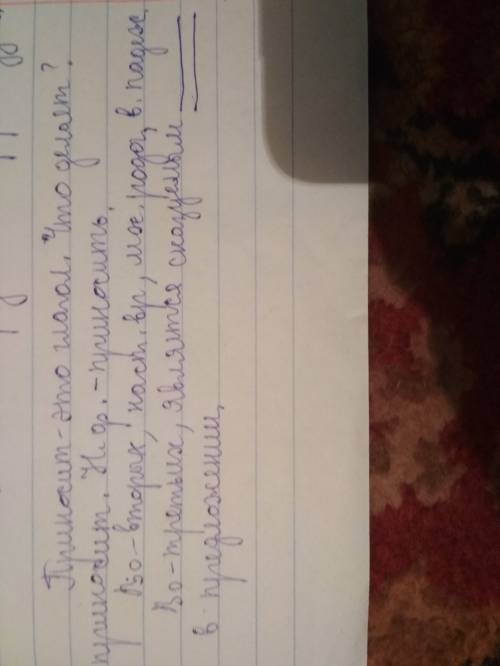 Приносит-это глагол. Что делает?
приносит. Н.ф.-приносить.
Во-вторых, наст. вр, мж. рода, в. падеж,
Во-третьих, является сказуемым
в предложении,